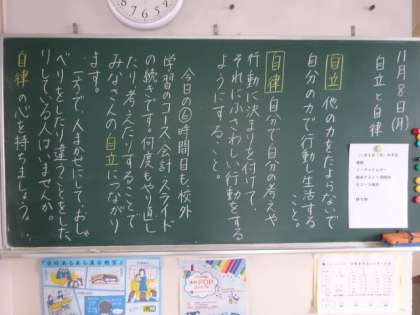 11月8日(月)
自立と自律
自立 他の力をたよらないで
自分の力で行動し生活する
こと。
自律 自分で自分の考えや
行動に決まりを付けて、
それにふさわしい行動をする
ようにすること。
今日の⑥時間目も校外
学習のコース、会計、スライド
の続きです。何度もやり直し
たり考えたりすることで
みなさんの自立につながり
ます。
一方で、人まかせにして、おしゃ
べりをしたり違うことをした
りしている人はいませんか。
自律の心を持ちましょう。